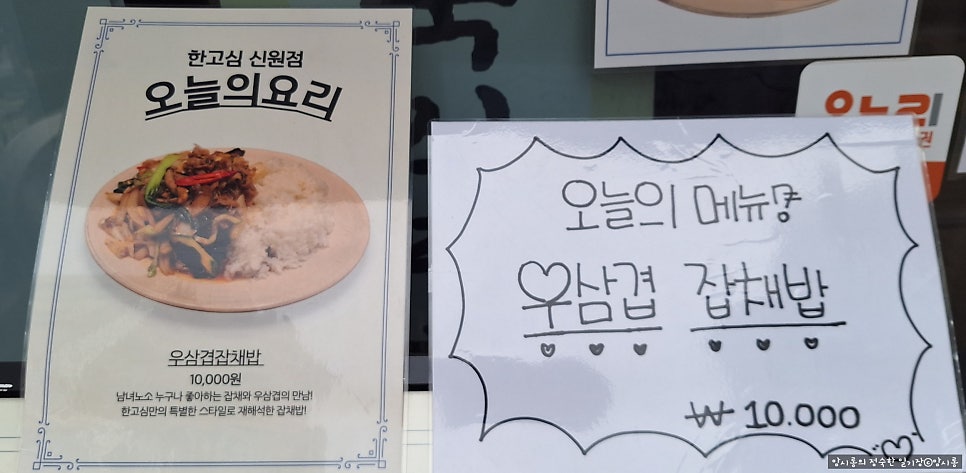 한고심 신원점
오늘의요리
우삼겹잡채밥
10,000원
남녀노소 누구나 좋아하는 잡채와 우삼겹의 만남!
한고심만의 특별한 스타일로 재해석한 잡채밥!
오늘의 메뉴명
우삼겹 잡채밥
₩ 10.000